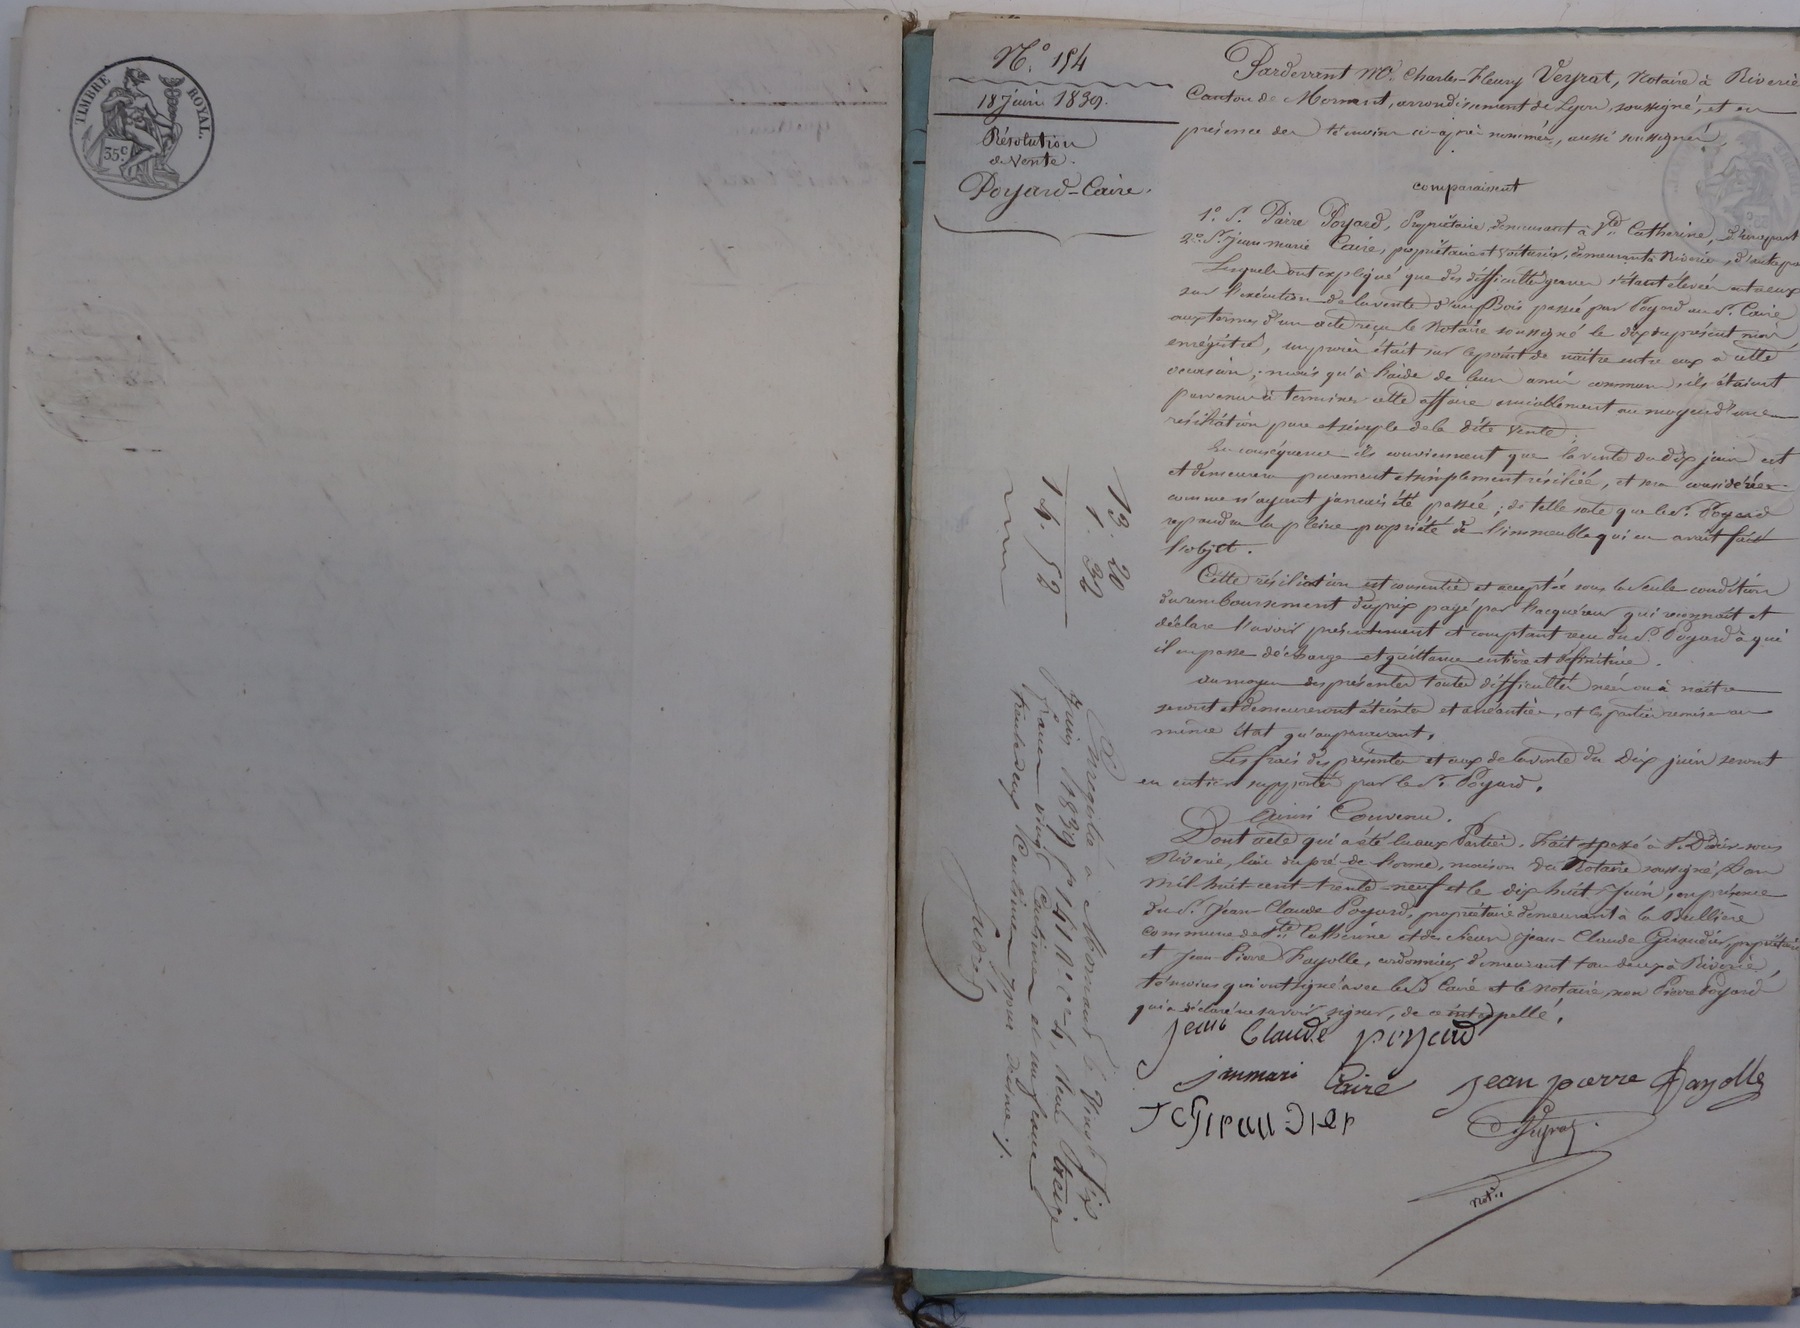 TIMBRE ROYAL.
35c
N.° 154
18 juin 1839.
Résolution
de Vente.
Poyard-Caire.
Pardevant Me. Charles-Fleury Veyrat, Notaire à Riverie
Canton de Mornant, arrondissement de Lyon, soussigné, et en
présence des témoins ci-après nommés, aussi soussignés,
comparaissent
1.° S. Pierre Poyard, Propriétaire, demeurant à Ste Catherine, d'une part
2.° S. Jean-marie Caire, propriétaire et voiturier, demeurant à Riverie, d'autre part
Lesquels ont expliqué que des difficultés graves s'étant élevées entre eux
sur l'exécution de la vente d'un Bois passée par Poyard au S. Caire
aux termes d'un acte reçu le Notaire soussigné le dix du présent mois
enrégistré, un procès était sur le point de naître entre eux à cette
occasion; mais qu'à l'aide de leurs amis communs, ils étaient
parvenus à terminer cette affaire amiablement au moyen d'une
résiliation pure et simple de la dite vente.
En conséquence ils conviennent que la vente du dix juin est
et demeurera purement et simplement résiliée, et sera considérée
comme n'ayant jamais été passée; de telle sorte que le S. Poyard
reprendra la pleine propriété de l'immeuble qui en avait fait
l'objet.
Cette résiliation est consentie et acceptée sous la seule condition
du remboursement du prix payé par l'acquéreur qui reconnaît et
déclare l'avoir présentement et comptant reçu du S. Poyard à qui
il en passe décharge et quittance entière et définitive.
Au moyen des présentes toutes difficultés nées ou à naître
seront et demeureront éteintes et anéanties, et les parties remises au
même état qu'auparavant.
Les frais des présentes et ceux de la vente du Dix juin seront
en entier supportés par le S. Poyard.
Ainsi Convenu.
Dont acte qui a été lu aux Parties. Fait et passé à St. Didier-sous
Riverie, lieu du pré-de-l'orme, maison du Notaire soussigné, L'an
mil-huit-cent-trente-neuf et le dix huit Juin, en présence
du S. Jean-Claude Poyard, propriétaire demeurant à la Bullière
commune de Ste Catherine et des sieurs Jean-Claude Giraudier, propriétaire
et Jean-Pierre Fayolle, cordonnier, demeurant tous deux à Riverie,
témoins qui ont signé avec led. Caire et le notaire, non Pierre Poyard
qui a déclaré ne savoir signer, de ce interpellé.
jean Claude poyard
janmari Caire
jean pierre fayolle
J C Giraudier
Veyrat
Not.re
13. 20
1. 32
14. 52
Enregistré à Mornant le Vingt six
juin 1839 f.° 141 R.° c.es 4. Reçu treize
francs vingt Centimes et un franc
trente deux Centimes pour dixme ./.